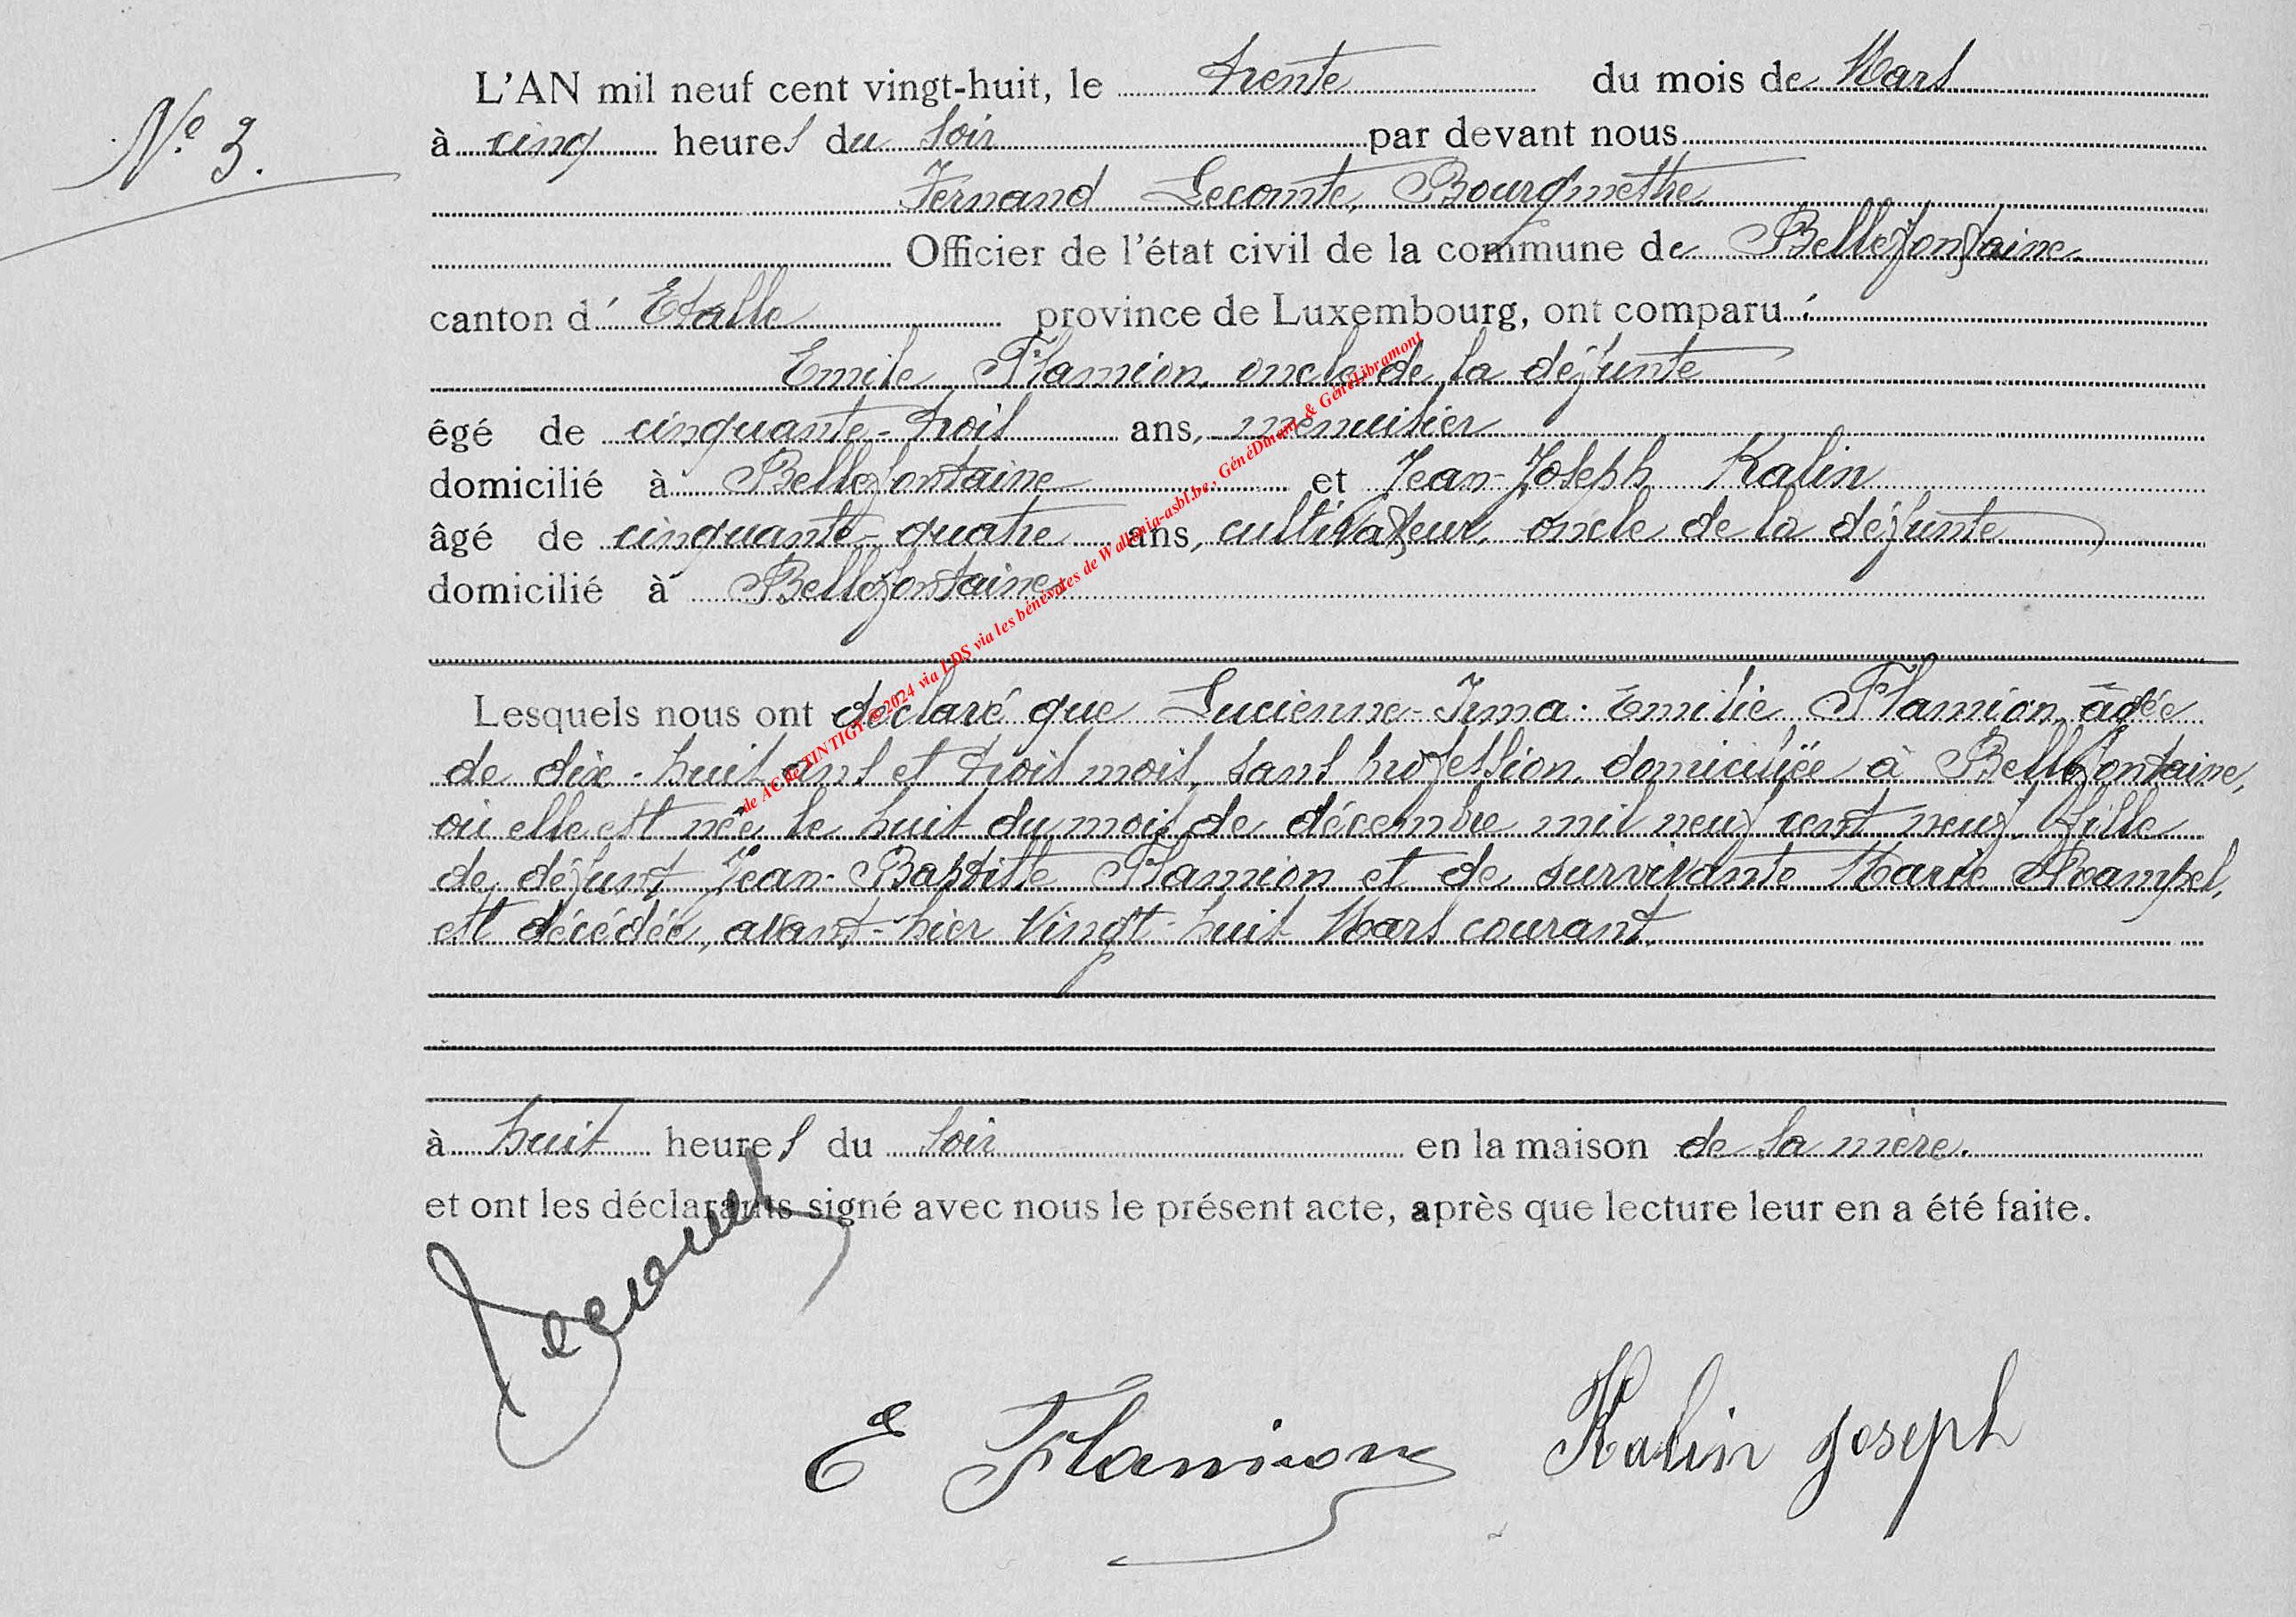 L'AN mil neuf cent vingt-huit, le trente du mois de Mars
N° 3.
à cinq heures du soir par devant nous
Fernand Lecomte, Bourgmethre
Officier de l'état civil de la commune de Bellefontaine.
canton d' Etalle province de Luxembourg, ont comparu :
Emile Flamion, oncle de la défunte
êgé de cinquante-trois ans, menuisier
domicilié à Bellefontaine et Jean-Joseph Kalin
âgé de cinquante-quatre ans, cultivateur, oncle de la défunte
domicilié à Bellefontaine
de AC de TINTIGNY © 2024 via LDS via les bénévotes de Wallonia-asbl.be, GénéDinant & GénéLibramont
Lesquels nous ont déclaré que Lucienne-Irma-Emilie Flamion, âgée
de dix-huit ans et trois mois, sans profession, domiciliée à Bellefontaine,
où elle est née le huit du mois de décembre mil neuf cent neuf, fille
de défunt Jean-Baptiste Flamion et de survivante Marie
est décédée, avant-hier vingt-huit Mars courant,
à huit heures du soir en la maison de sa mère.
et ont les déclarants signé avec nous le présent acte, après que lecture leur en a été faite.
E Flamion Kalin Joseph